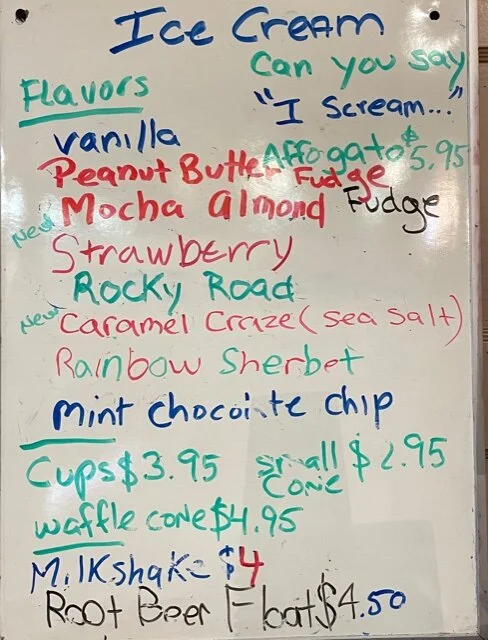 Ice Cream
Can you say
Flavors
"I Scream..."
vanilla
Affogato $5.95
Peanut Butter Fudge
Mocha Almond Fudge
New Strawberry
Rocky Road
New Caramel Craze (sea salt)
Rainbow Sherbet
mint chocolate chip
Cups $3.95 small cone $2.95
waffle cone $4.95
Milkshake $4
Root Beer Float $4.50